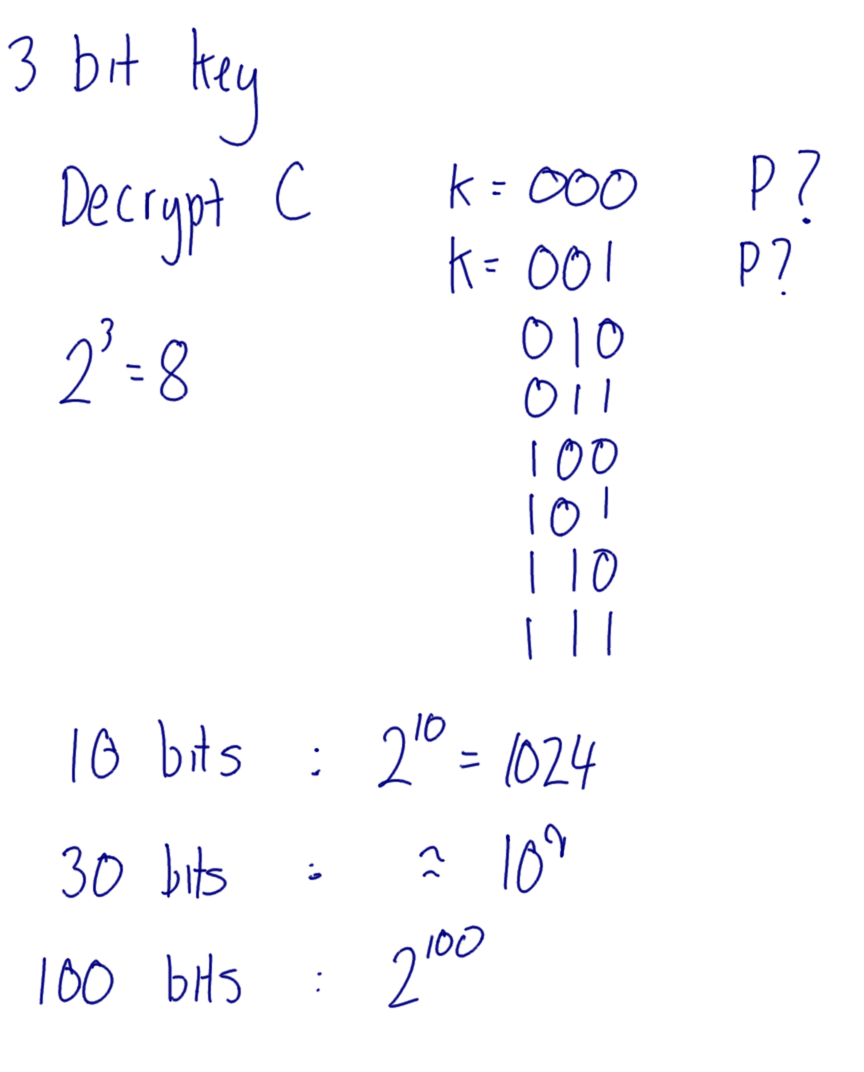 3 bit key
Decrypt C k = 000 P?
k = 001 P?
2³ = 8 010
011
100
101
110
111
10 bits : 2¹⁰ = 1024
30 bits : ≈ 10⁹
100 bits : 2¹⁰⁰